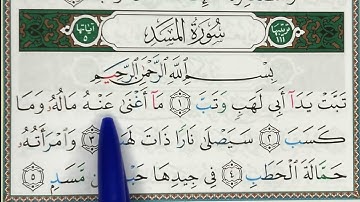 ترتيبها ١١١ سُورَةُ المَسَدِ آياتها ٥
بِسْمِ اللَّهِ الرَّحْمَٰنِ الرَّحِيمِ
تَبَّتْ يَدَآ أَبِي لَهَبٍ وَتَبَّ ١ مَآ أَغْنَىٰ عَنْهُ مَالُهُۥ وَمَا
كَسَبَ ٢ سَيَصْلَىٰ نَارًا ذَاتَ ٣ وَٱمْرَأَتُهُۥ
حَمَّالَةَ ٱلْحَطَبِ ٤ فِي جِيدِهَا مَّسَدٍۭ ٥